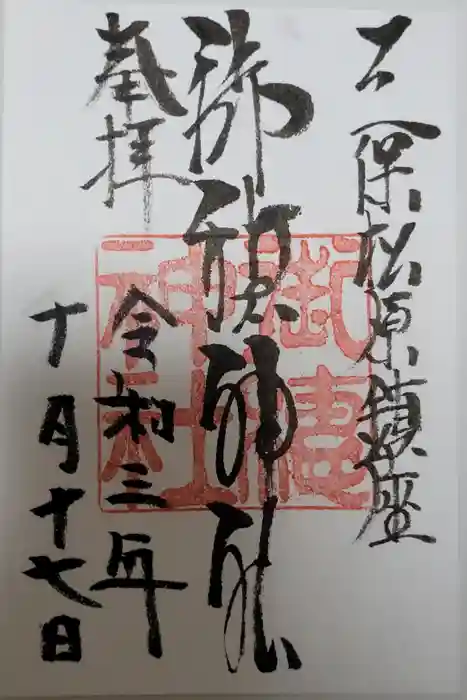 三保松原鎮座
御穂神社
奉拝
令和三年
十月十七日
御穂
神社